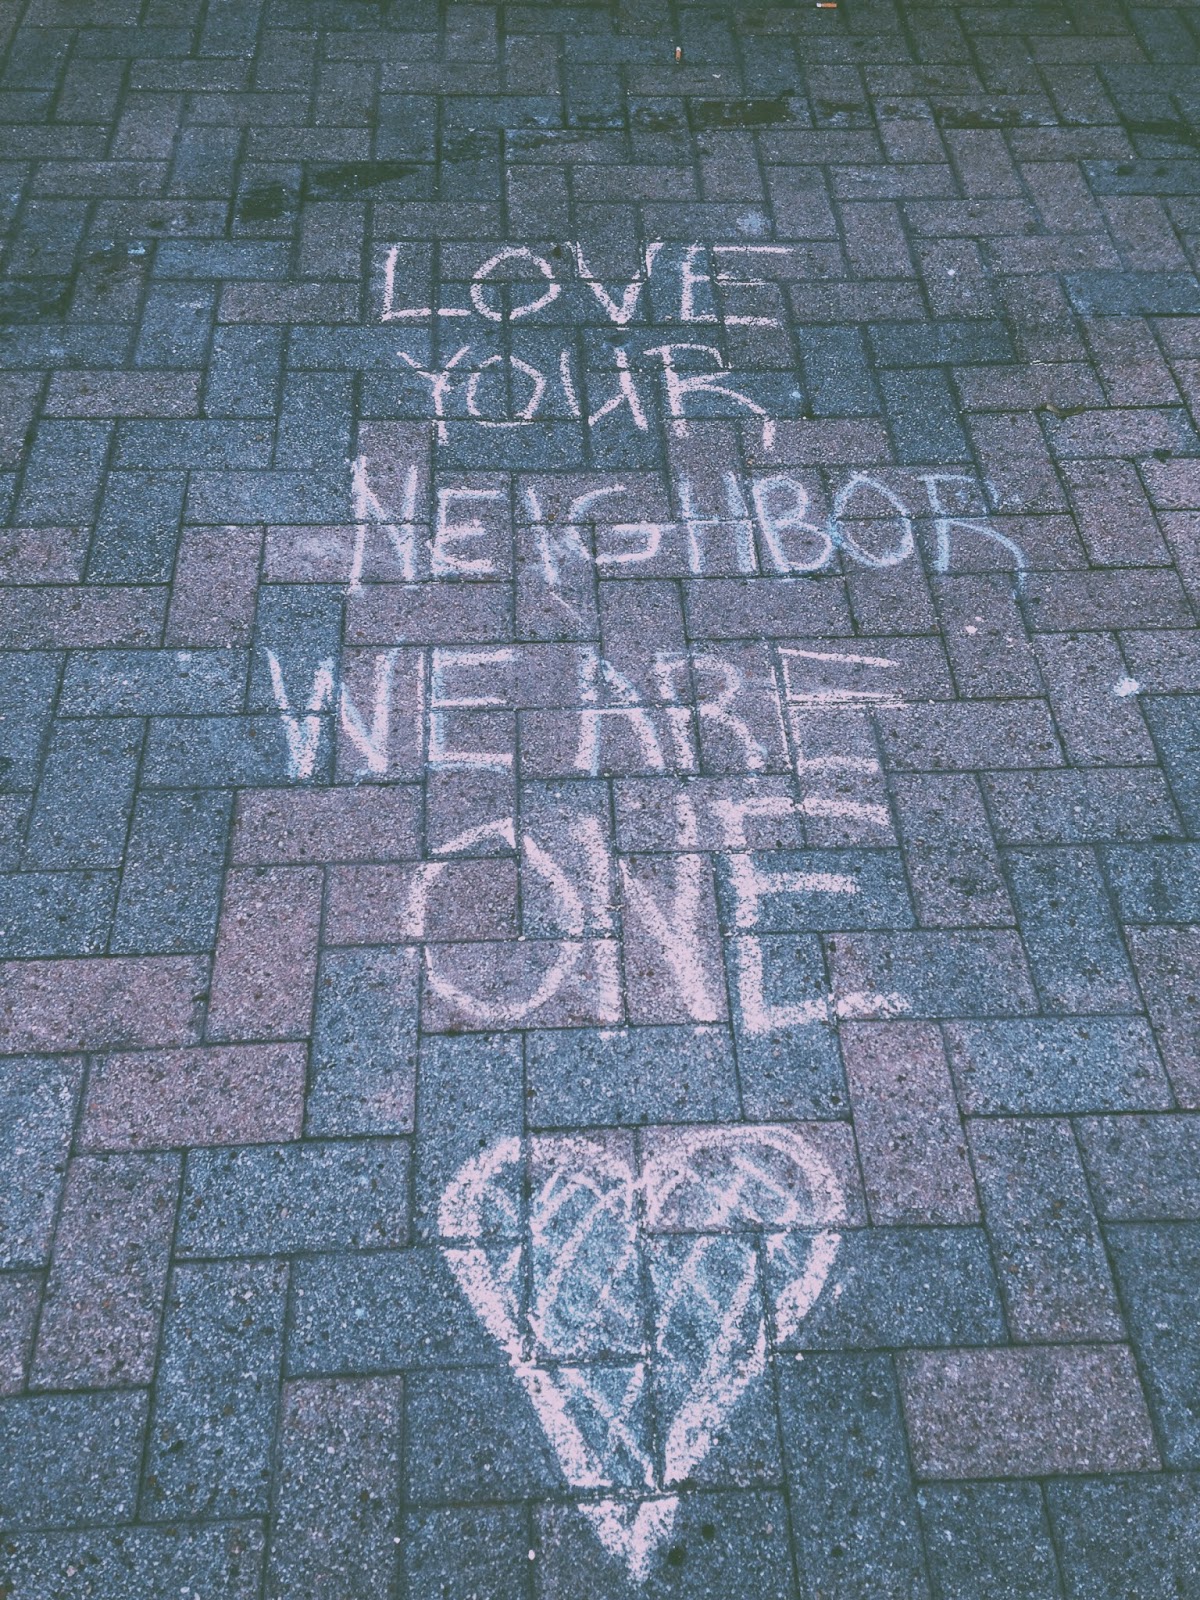 LOVE
YOUR
NEIGHBOR
WE ARE
ONE